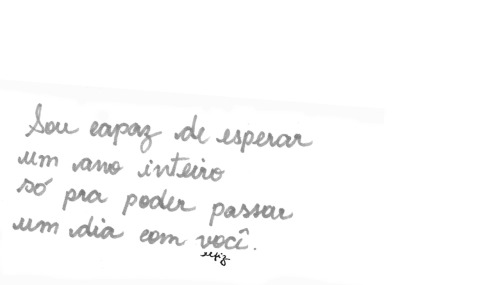 Sou capaz de esperar
um ano inteiro
só pra poder passar
um dia com você.